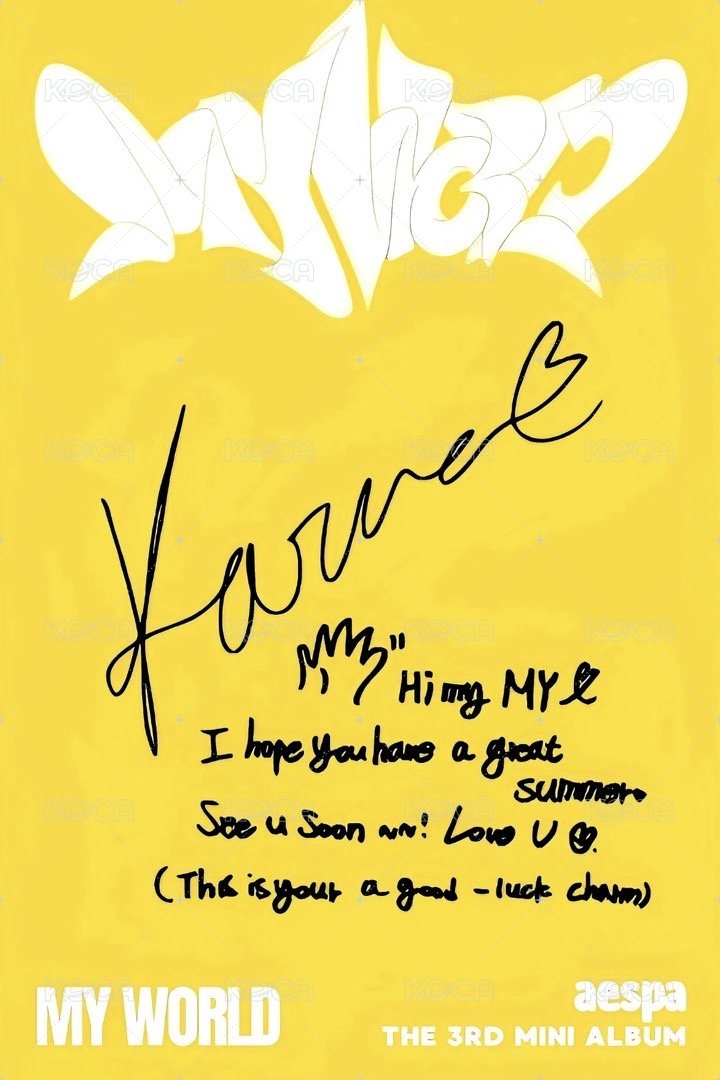 MY WORLD
Karina
Hi my MY
I hope you have a great
summer
See u soon ~~! Love U
(This is your a good-luck charm)
MY WORLD
aespa
THE 3RD MINI ALBUM
KOCA